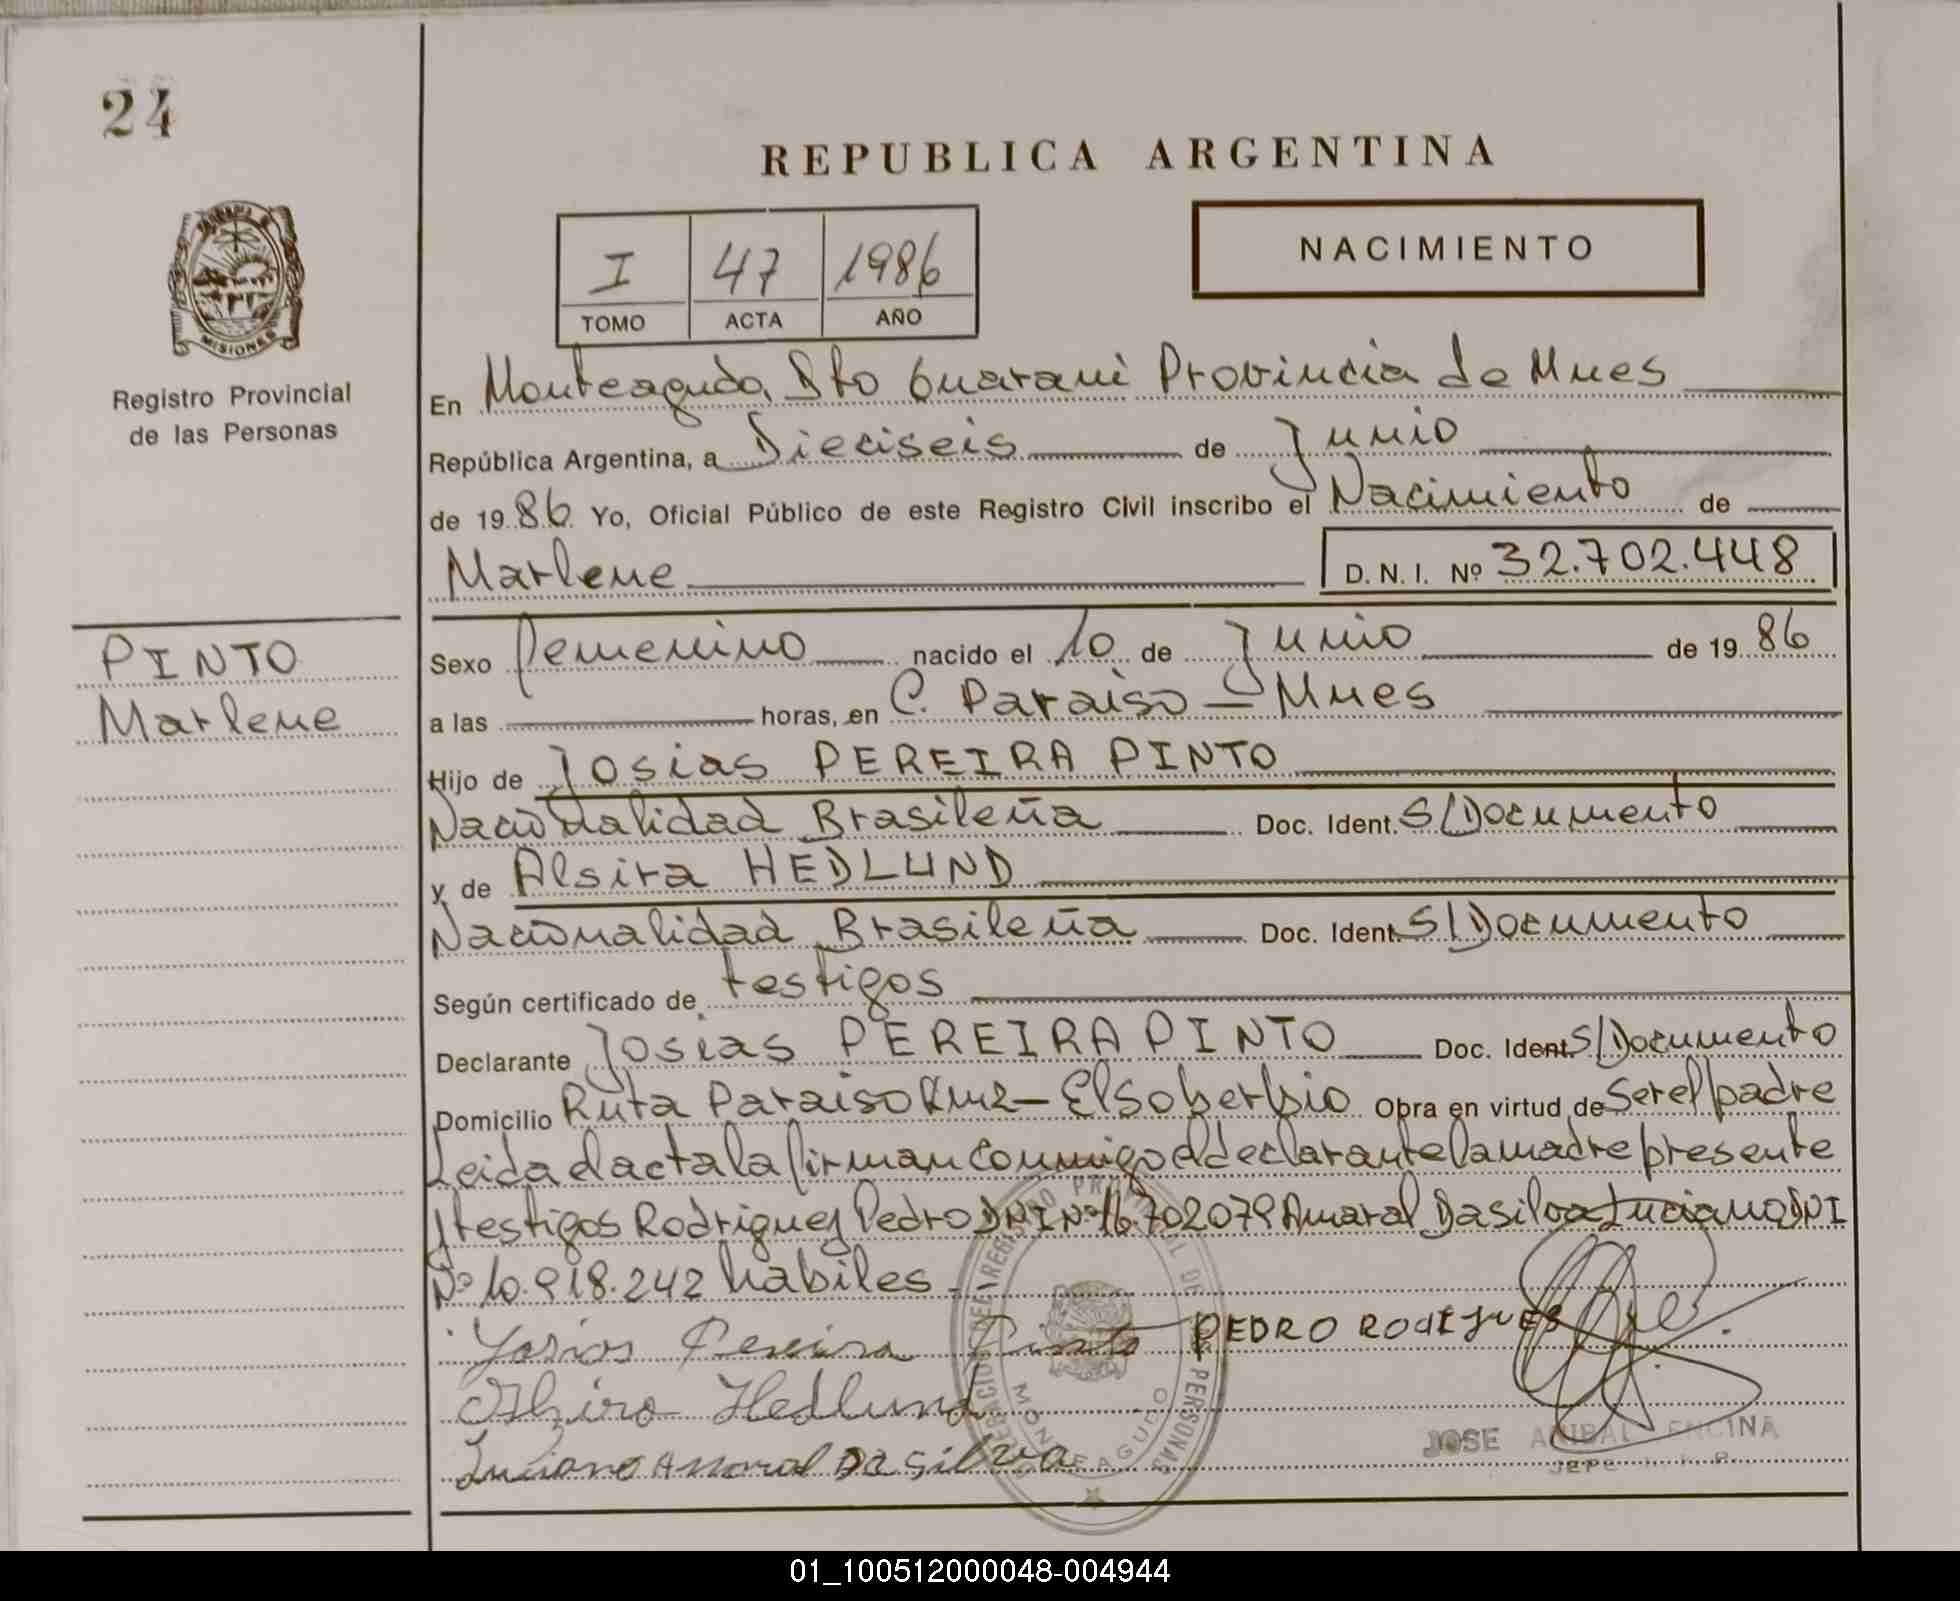 24
REPUBLICA ARGENTINA
NACIMIENTO
I 47 1986
TOMO ACTA AÑO
MISIONES
Registro Provincial
de las Personas
En Monteagudo, Dto Guarani Provincia de Mnes
República Argentina, a Dieciseis de Junio
de 1986 Yo, Oficial Público de este Registro Civil inscribo el Nacimiento de
Marlene D. N. I. Nº 32.702.448
PINTO
Marlene
Sexo femenino nacido el 10 de Junio de 1986
a las horas, en C. Paraiso - Mnes
Hijo de Josias PEREIRA PINTO
Nacionalidad Brasileña Doc. Ident. S/Documento
y de Alsira HEDLUND
Nacionalidad Brasileña Doc. Ident. S/Documento
Según certificado de testigos
Declarante Josias PEREIRA PINTO Doc. Ident. S/Documento
Domicilio Ruta Paraiso - El Soberbio Obra en virtud de Ser el padre
Leida el acta la firman conmigo el declarante la madre presente
y testigos Rodriguez Pedro DNI Nº 16.702079 Amaral Da silva Luciano DNI
Nº 10.918.242 habiles
Josias Pereira Pinto PEDRO
Hedlund
Luciano Amaral Da Silva
MONTEAGUDO
JOSE ANIBAL ENCINA
01_100512000048-004944